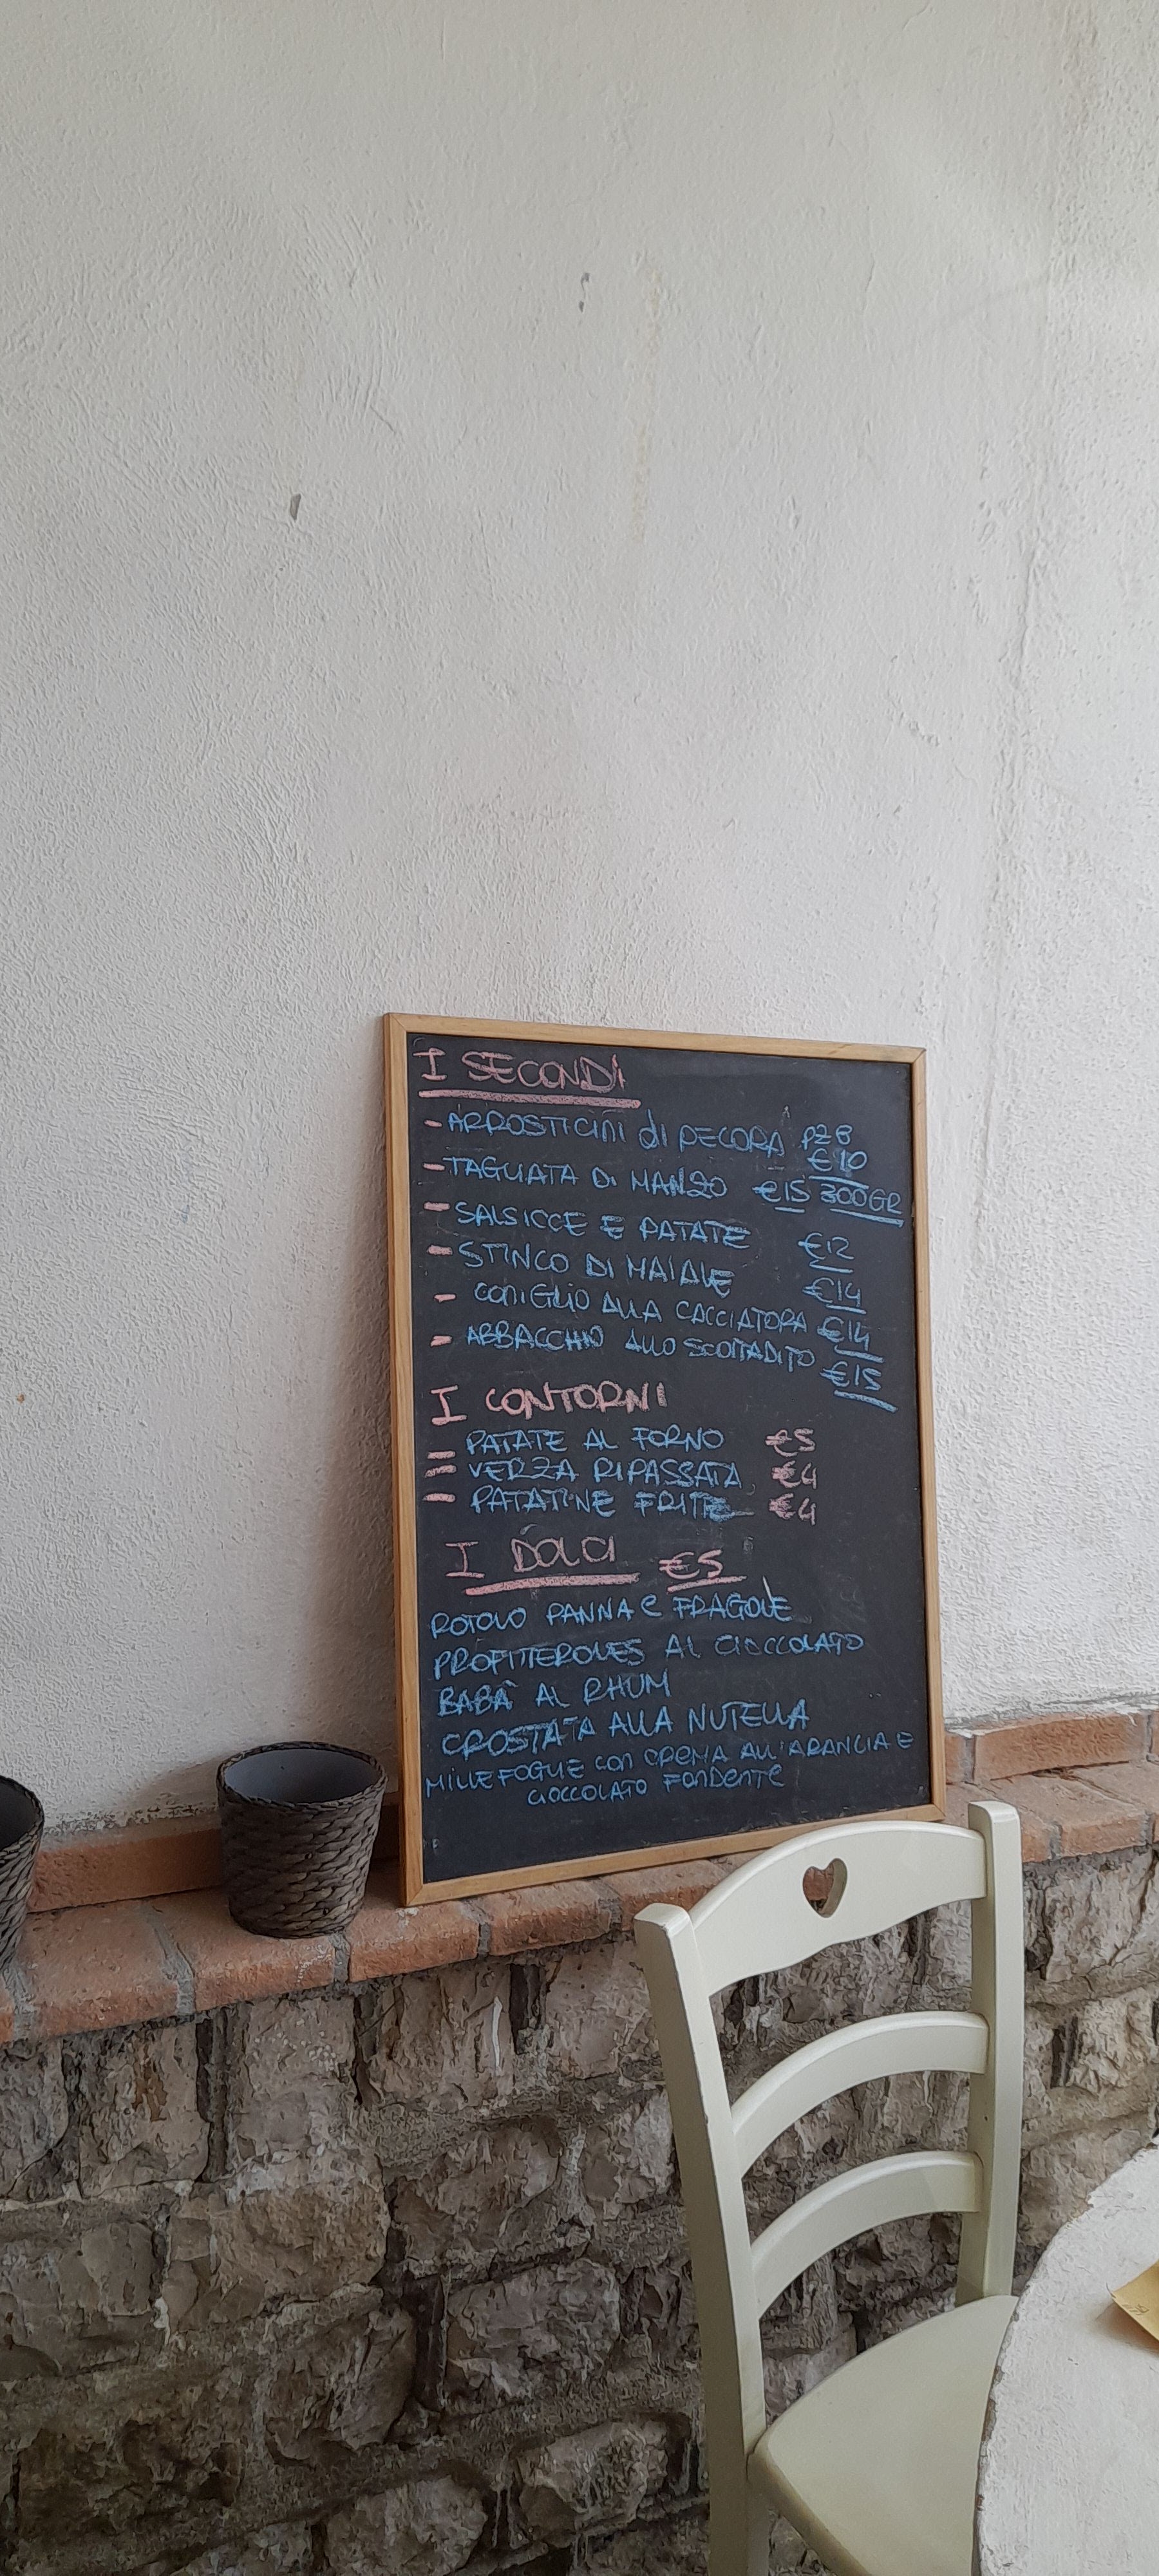 I SECONDI
- ARROSTICINI di PECORA PZ 8
€10
- TAGLIATA DI MANZO €15 300GR
- SALSICCE E PATATE €12
- STINCO DI MAIALE €14
- CONIGLIO ALLA CACCIATORA €14
- ABBACCHIO ALLO SCOTTADITO €15
I CONTORNI
- PATATE AL FORNO €5
- VERZA RIPASSATA €4
- PATATINE FRITTE €4
I DOLCI €5
ROTOLO PANNA e FRAGOLE
PROFITEROLES AL CIOCCOLATO
BABÀ AL RHUM
CROSTATA ALLA NUTELLA
MILLEFOGLIE con CREMA ALL'ARANCIA E
CIOCCOLATO FONDENTE